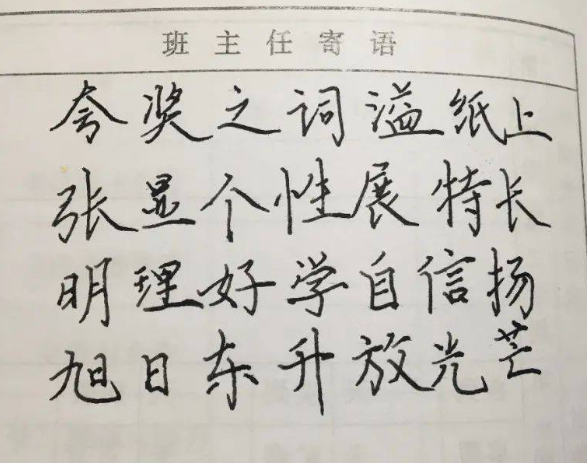 班主任寄语
夸奖之词溢纸上
张显个性展特长
明理好学自信扬
旭日东升放光芒